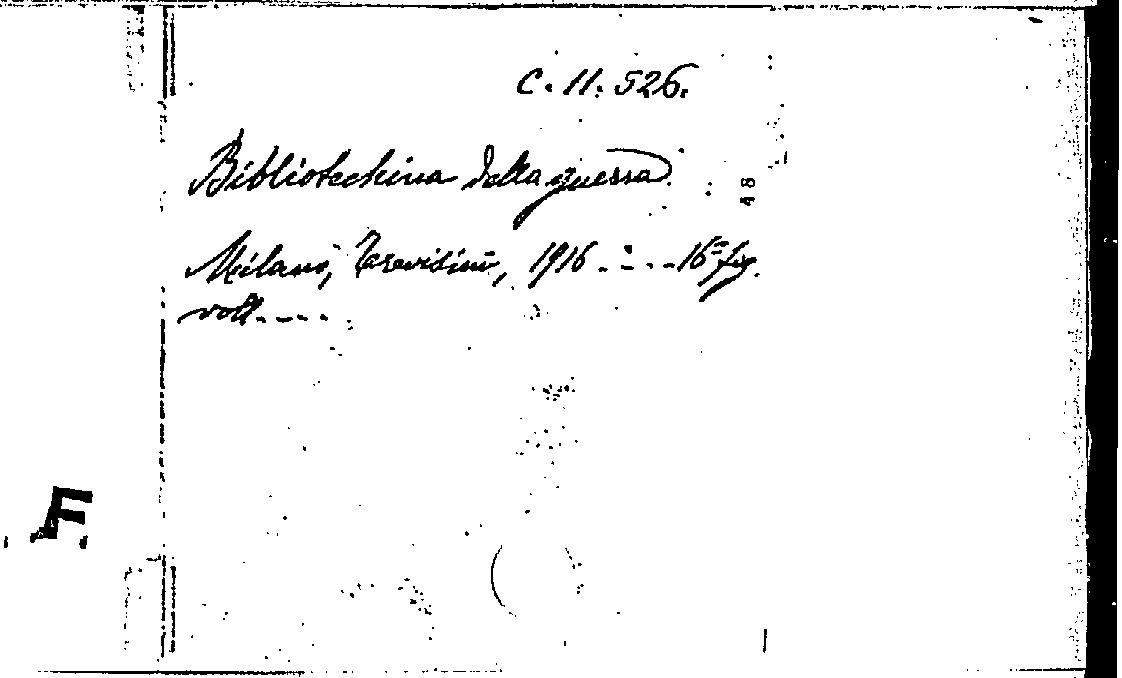 C. 11. 526.
Bibliotechina della guerra.
48
Milano, Trevisini, 1916 . - . - - 16º fig.
voll. - - - -
F.